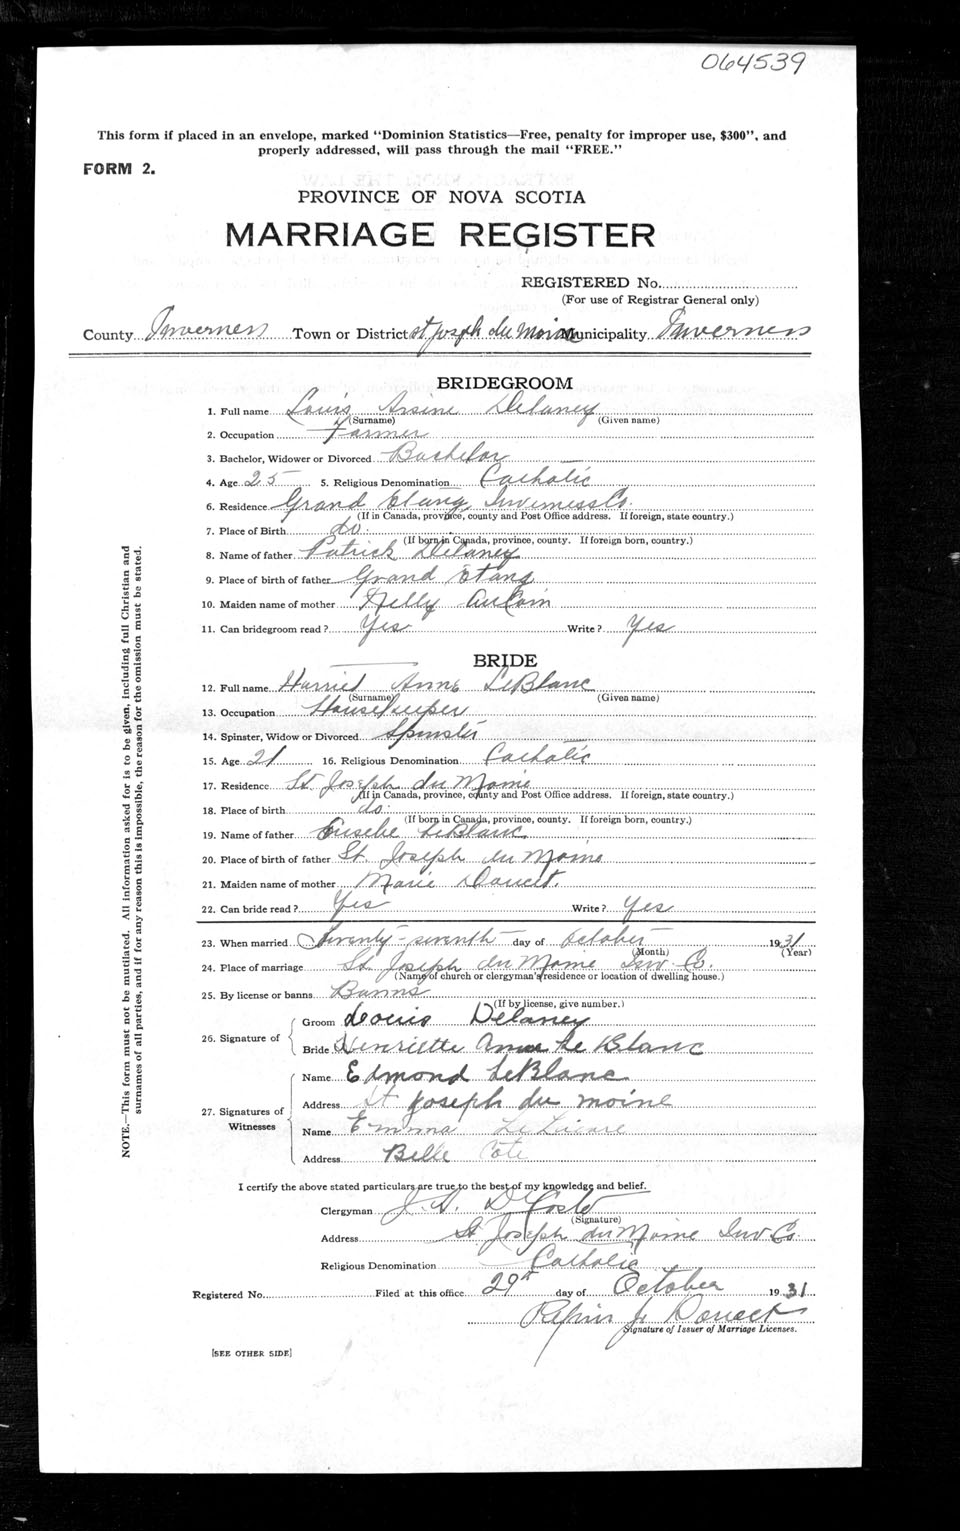 064539
This form if placed in an envelope, marked "Dominion Statistics—Free, penalty for improper use, $300", and
properly addressed, will pass through the mail "FREE."
FORM 2.
PROVINCE OF NOVA SCOTIA
MARRIAGE REGISTER
REGISTERED No.
(For use of Registrar General only)
County Inverness Town or District St Joseph du Moine Municipality Inverness
BRIDEGROOM
1. Full name Louis Arsine Delaney
(Surname) (Given name)
2. Occupation Farmer
3. Bachelor, Widower or Divorced Bachelor
4. Age 25 5. Religious Denomination Catholic
6. Residence Grand Etang Inverness Co.
(If in Canada, province, county and Post Office address. If foreign, state country.)
7. Place of Birth do.
(If born in Canada, province, county. If foreign born, country.)
8. Name of father Patrick Delaney
9. Place of birth of father Grand Etang
10. Maiden name of mother Nelly AuCoin
11. Can bridegroom read? Yes Write? Yes
BRIDE
12. Full name Harriet Anne LeBlanc
(Surname) (Given name)
13. Occupation Housekeeper
14. Spinster, Widow or Divorced Spinster
15. Age 21 16. Religious Denomination Catholic
17. Residence St. Joseph du Moine
(If in Canada, province, county and Post Office address. If foreign, state country.)
18. Place of birth do.
(If born in Canada, province, county. If foreign born, country.)
19. Name of father Eusebe LeBlanc
20. Place of birth of father St. Joseph du Moine
21. Maiden name of mother Marie Doucet.
22. Can bride read? Yes Write? Yes
23. When married Twenty-seventh day of October 1931
(Month) (Year)
24. Place of marriage St. Joseph du Moine Inv. Co.
(Name of church or clergyman's residence or location of dwelling house.)
25. By license or banns Banns
(If by license, give number.)
26. Signature of Groom Louis Delaney
Bride Henriette Anna Le Blanc
27. Signatures of Witnesses Name Edmond LeBlanc
Address St Joseph du moine
Name Emma
Address Belle Cote
I certify the above stated particulars are true to the best of my knowledge and belief.
Clergyman J. A. DeCoste
(Signature)
Address St. Joseph du Moine Inv Co.
Religious Denomination Catholic
Registered No. Filed at this office 29th day of October 1931
Doucet
Signature of Issuer of Marriage Licenses.
[SEE OTHER SIDE]
NOTE.—This form must not be mutilated. All information asked for is to be given, including full Christian and
surnames of all parties, and if for any reason this is impossible, the reason for the omission must be stated.